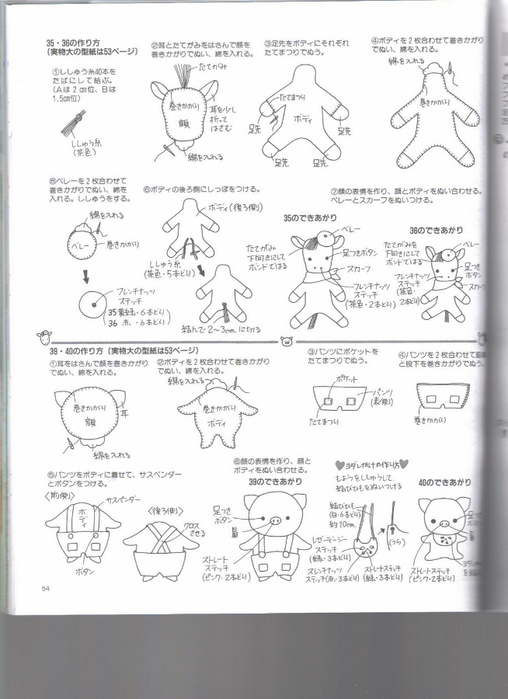 35・36の作り方
(実物大の型紙は53ページ)
①ししゅう糸40本を
たばにして結ぶ。
(Aは2cm位、Bは
1.5cm位)
ししゅう糸
(茶色)
②耳とたてがみをはさんで顔を
巻きかがりでぬい、綿を入れる。
たてがみ
巻きかがり
顔
耳を少し
折って
はさむ
綿を入れる
③足先をボディにそれぞれ
たてまつりでぬう。
たてまつり
ボディ
足先
足先
足先
足先
④ボディを2枚合わせて巻きかがり
でぬい、綿を入れる。
綿を入れる
巻きかがり
⑤ベレーを2枚合わせて
巻きかがりでぬい、綿を
入れる。ししゅうをする。
綿を入れる
ベレー
巻きかがり
フレンチナッツ
ステッチ
⑥ボディの後ろ側にしっぽをつける。
ボディ(後ろ側)
ししゅう糸
(茶色・5本どり)
結んで2〜3cmに切る
⑦顔の表情を作り、顔とボディをぬい合わせる。
ベレーとスカーフをぬいつける。
35のできあがり
ベレー
たてがみ
下向きにして
ボンドではる
足つきボタン
スカーフ
フレンチナッツ
ステッチ
(茶色・2本どり)
36のできあがり
たてがみを
下向きにして
ボンドではる
ベレー
足つき
ボタン
スカーフ
フレンチナッツ
ステッチ
39・40の作り方(実物大の型紙は53ページ)
①耳をはさんで顔を巻きかがり
でぬい、綿を入れる。
巻きかがり
顔
耳
綿を入れる
②ボディを2枚合わせて巻きかがり
でぬい、綿を入れる。
綿を入れる
巻きかがり
ボディ
③パンツにポケットを
たてまつりでぬう。
ポケット
パンツ
(表側)
たてまつり
④パンツを2枚合わせて
と股下を巻きかがりでぬう。
巻きかがり
⑤パンツをボディに着せて、サスペンダー
とボタンをつける。
〈前側〉
サスペンダー
ボディ
ボタン
〈後ろ側〉
クロス
させる
⑥顔の表情を作り、顔と
ボディをぬい合わせる。
39のできあがり
足つき
ボタン
ストレート
ステッチ
(ピンク・2本どり)
ヨダレかけの作り方
もようをししゅうして
結びひもをぬいつける
結びひも
(白・6本どり)
約10cm
レゼーデージー
ステッチ
(うら)
40のできあがり
足つき
ボタン
ストレートステッチ
(ピンク・2本どり)
54